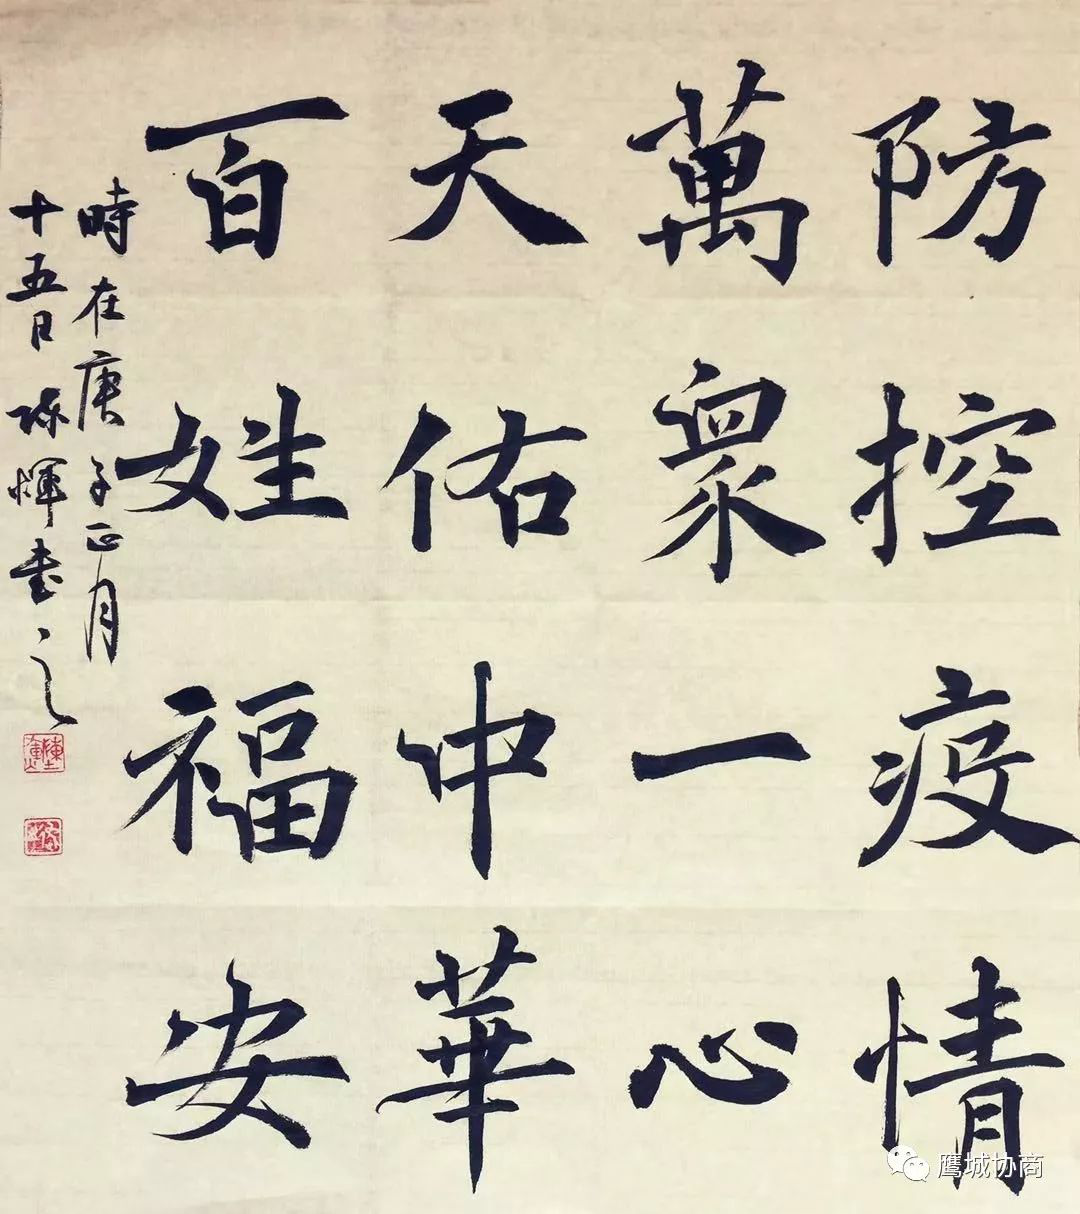 防控疫情
萬眾一心
天佑中華
百姓福安
時在庚子正月
十五日 陳輝書之
鹰城协商